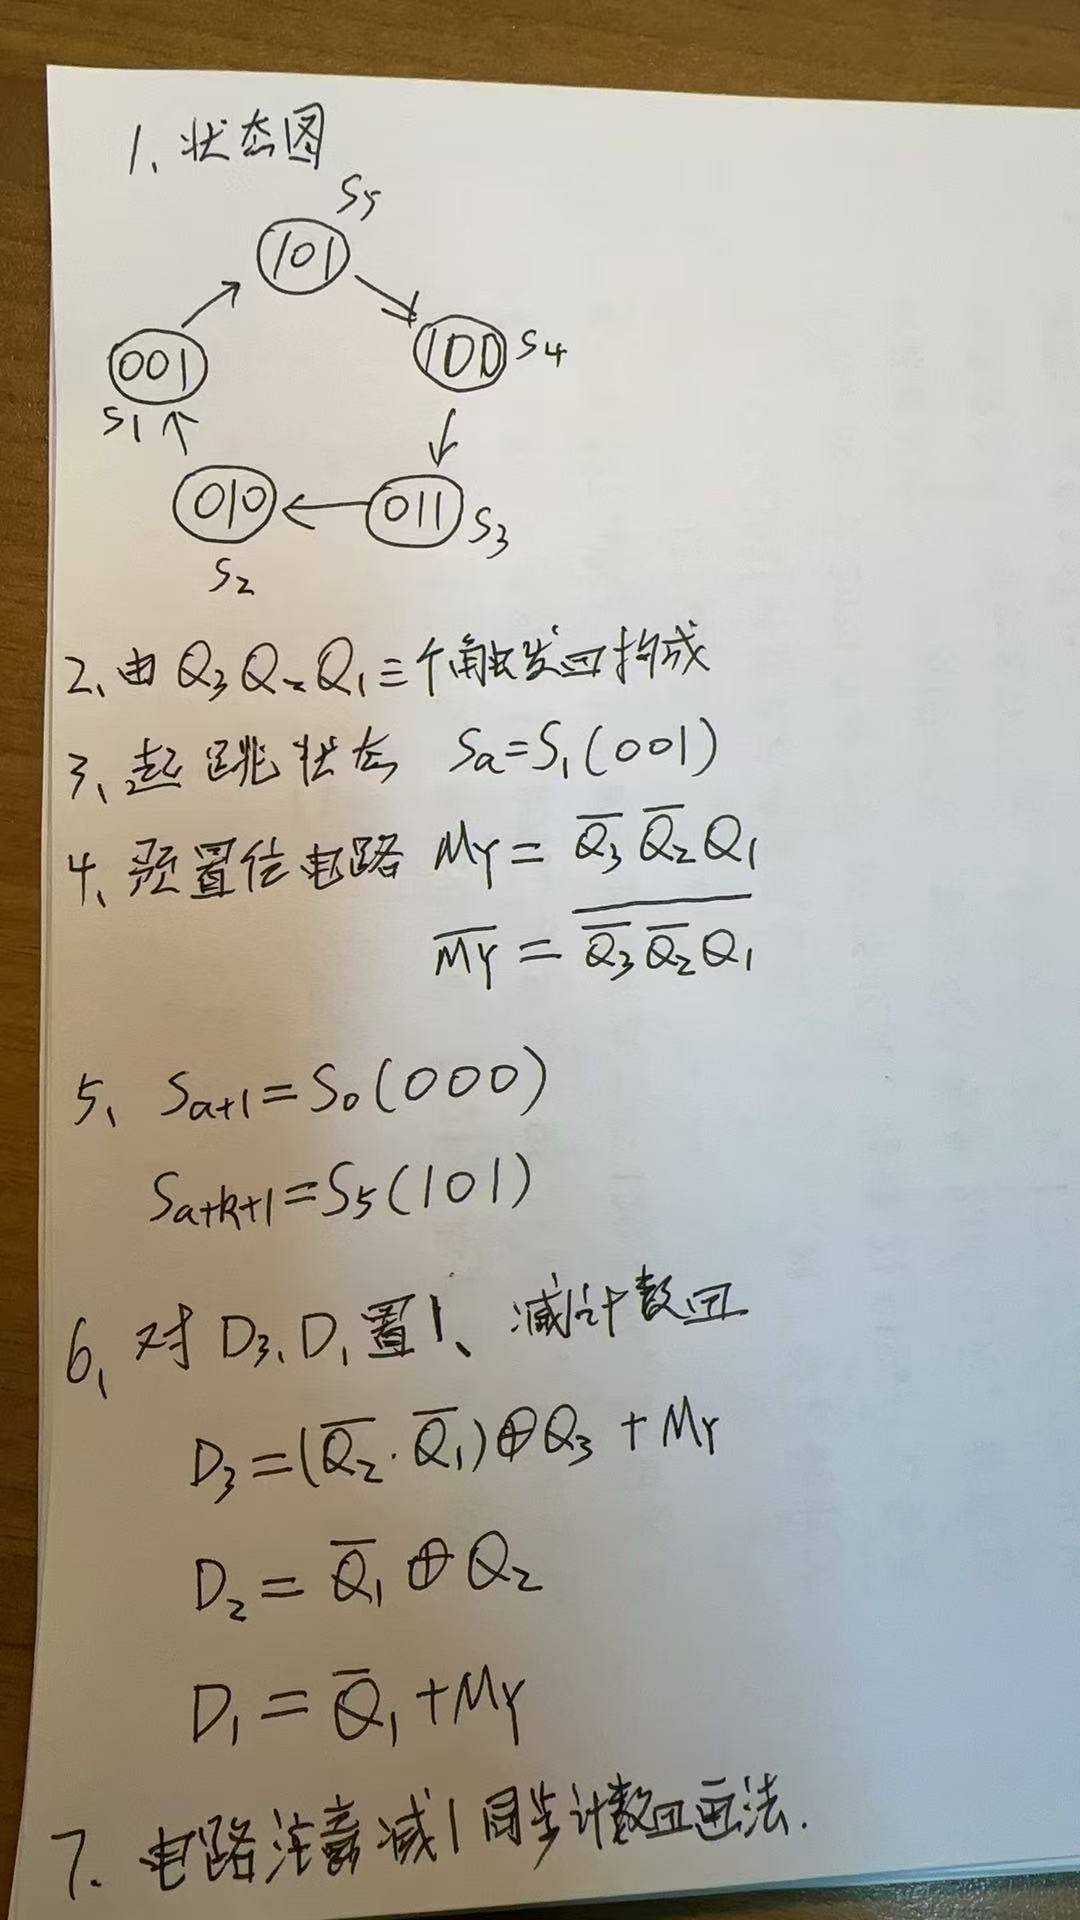 1、状态图
S5
101
001
100 S4
S1
010
011 S3
S2
2、由 Q₃Q₂Q₁三个触发皿构成
3、起跳状态 Sa=S₁(001)
4、预置位电路 My = Q̅₃ Q̅₂ Q₁
M̅y̅ = \overline{Q̅₃ Q̅₂ Q₁}
5、Sa+1=S₀(000)
Sa+k+1=S₅(101)
6、对 D₃、D₁置1、减计数皿
D₃=(Q̅₂·Q̅₁)⊕Q₃ + My
D₂ = Q̅₁ ⊕ Q₂
D₁ = Q̅₁ + My
7. 电路注意减1同步计数皿画法.